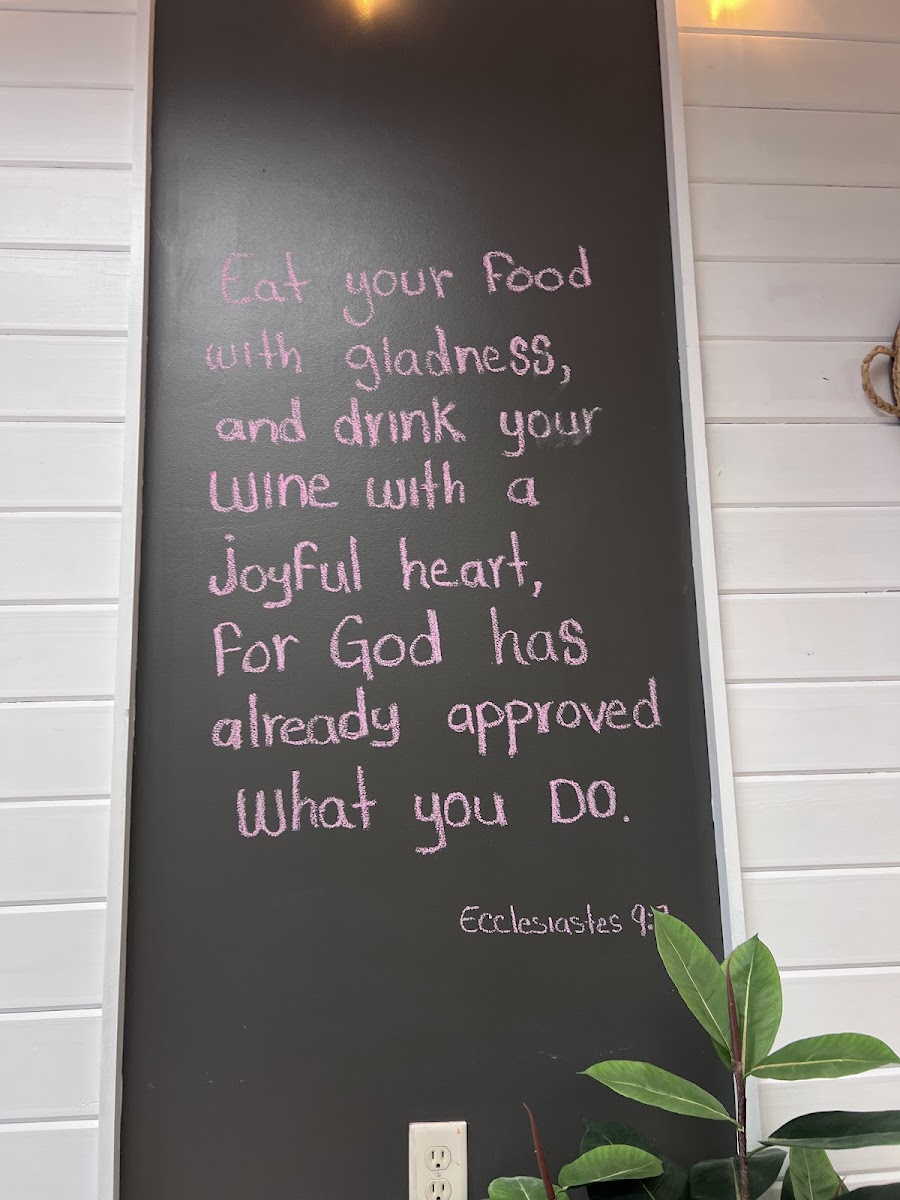 Eat your food
with gladness,
and drink your
wine with a
joyful heart,
for God has
already approved
what you DO.
Ecclesiastes 9:7